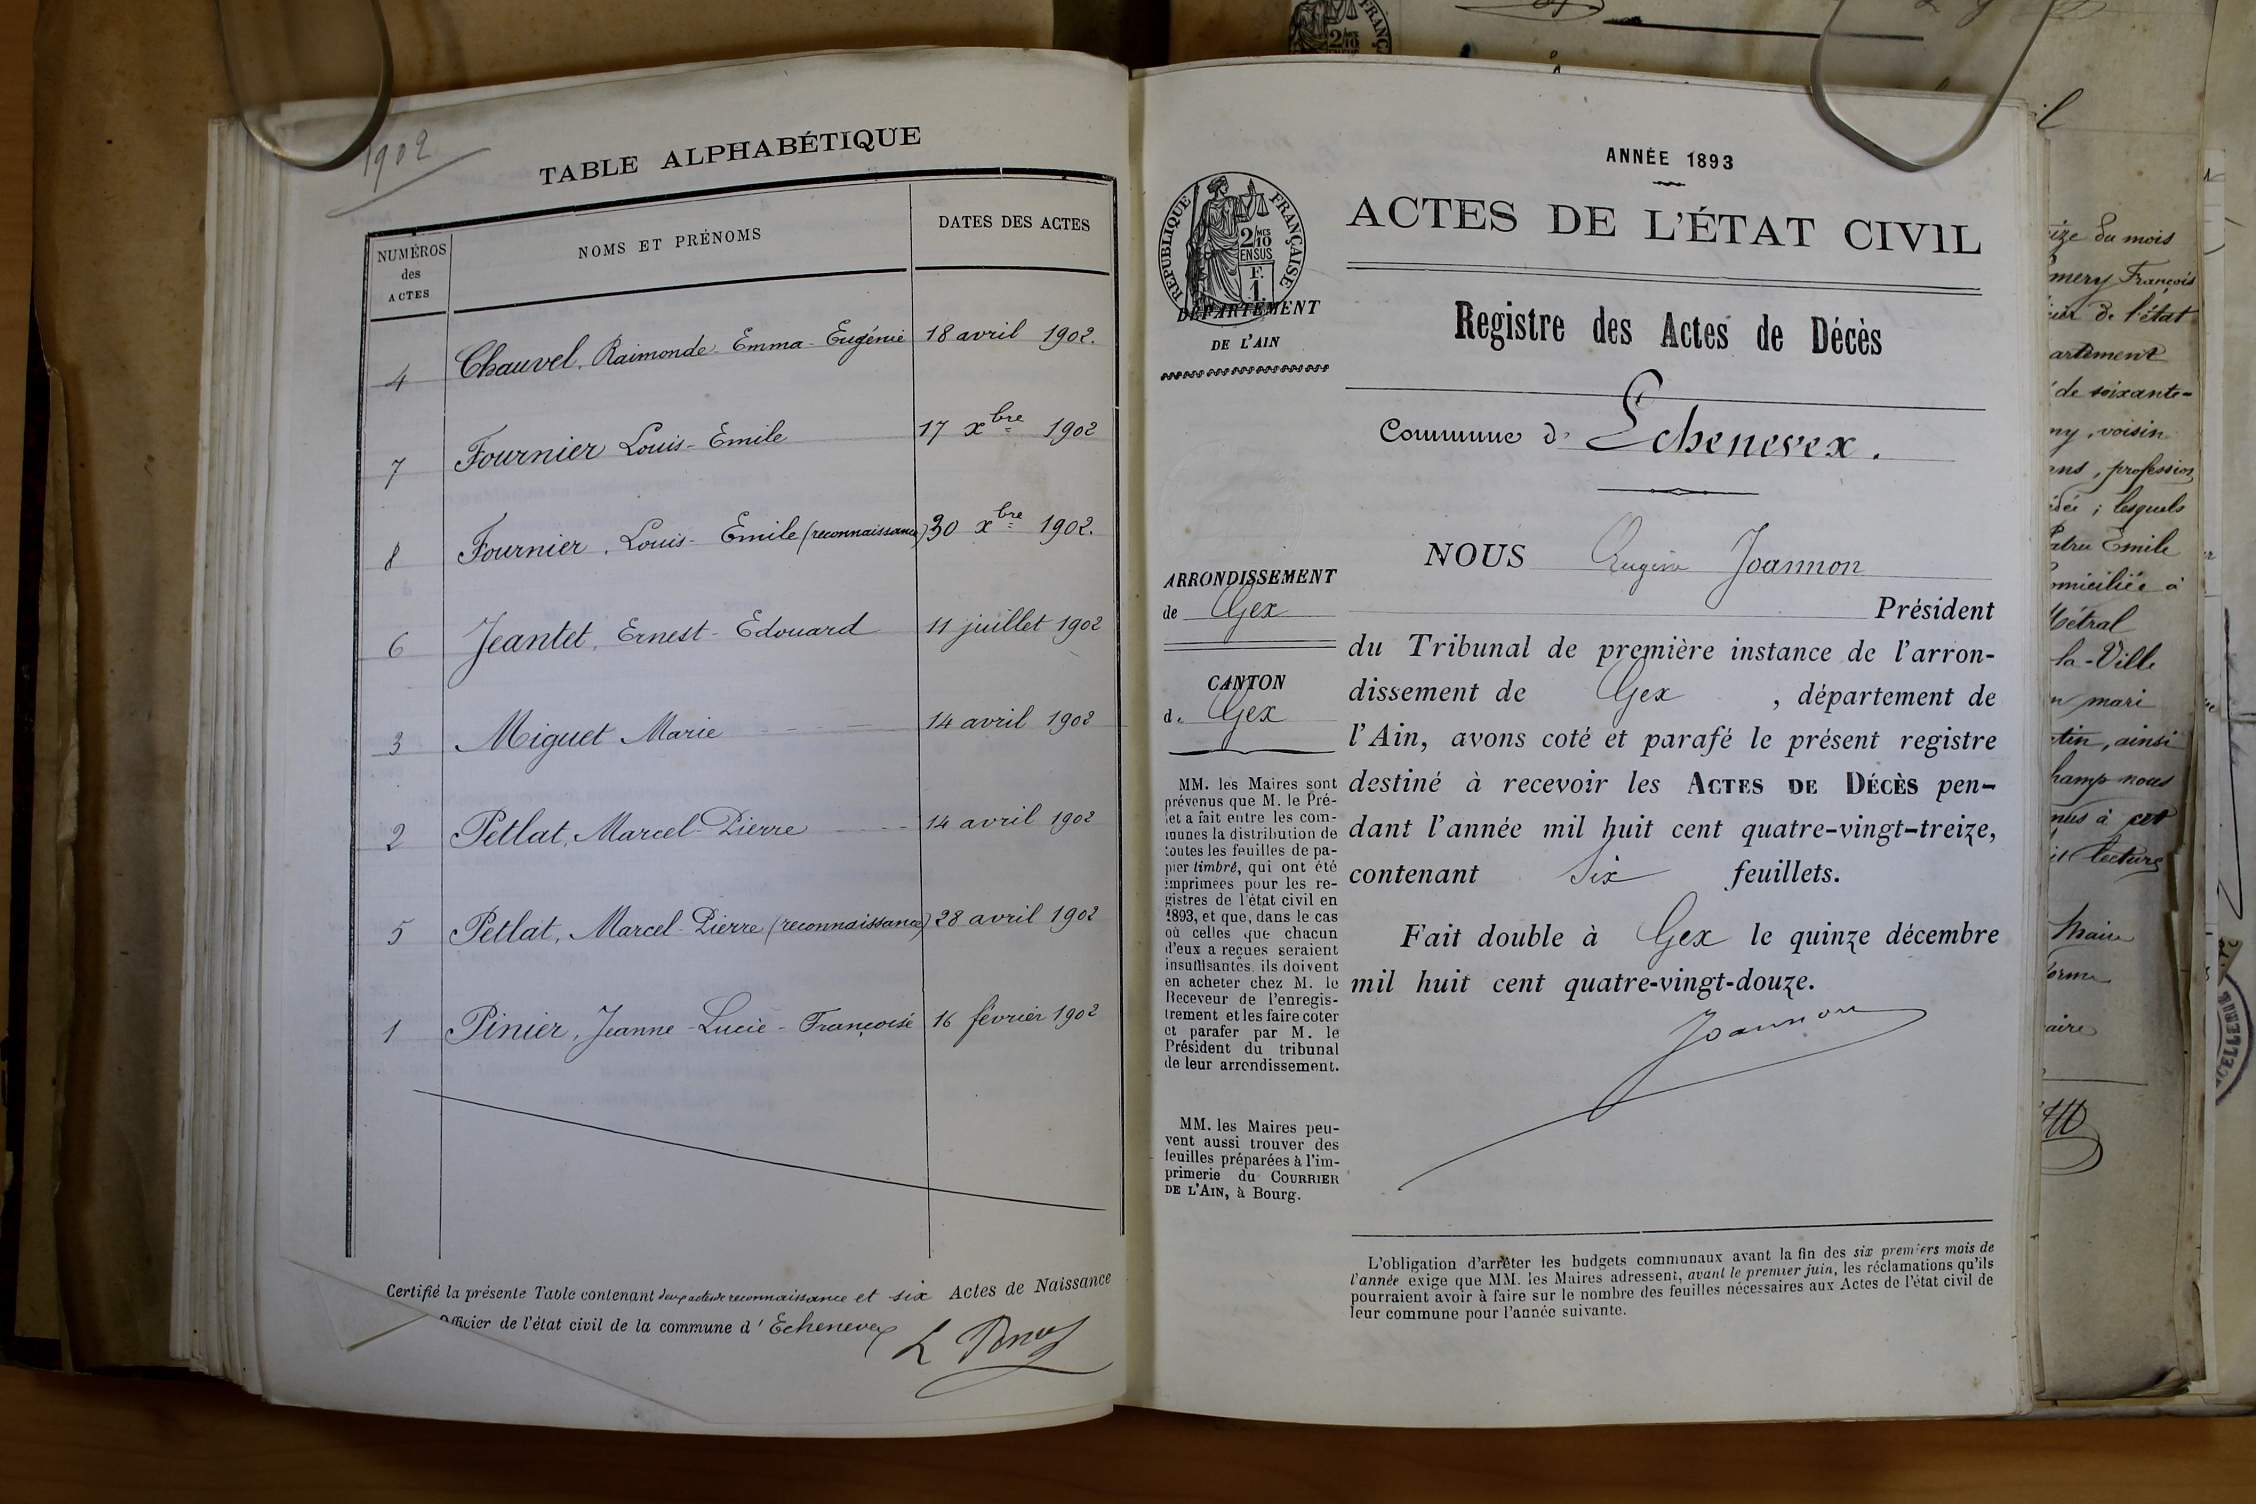 1902
TABLE ALPHABÉTIQUE
NUMÉROS
des
ACTES
NOMS ET PRÉNOMS
DATES DES ACTES
4 Chauvel, Raimonde Emma-Eugénie 18 avril 1902.
7 Fournier Louis-Emile 17 xbre 1902
8 Fournier, Louis-Emile (reconnaissance) 30 xbre 1902.
6 Jeantet, Ernest-Edouard 11 juillet 1902
3 Miguet Marie 14 avril 1902
2 Petlat, Marcel-Pierre 14 avril 1902
5 Petlat, Marcel-Pierre (reconnaissance) 28 avril 1902
1 Pinier, Jeanne-Lucie-Françoise 16 février 1902
Certifié la présente Table contenant deux actes de reconnaissance et six Actes de Naissance
Officier de l'état civil de la commune d'Echenevex
ANNÉE 1893
ACTES DE L'ÉTAT CIVIL
RÉPUBLIQUE FRANÇAISE
2/10 MES
EN SUS
F.
1.
DÉPARTEMENT
DE L'AIN
Registre des Actes de Décès
Commune d' Echenevex.
ARRONDISSEMENT
de Gex
CANTON
de Gex
MM. les Maires sont
prévenus que M. le Pré-
fet a fait entre les com-
munes la distribution de
toutes les feuilles de pa-
pier timbré, qui ont été
imprimées pour les re-
gistres de l'état civil en
1893, et que, dans le cas
où celles que chacun
d'eux a reçues seraient
insuffisantes, ils doivent
en acheter chez M. le
Receveur de l'enregis-
trement et les faire coter
et parafer par M. le
Président du tribunal
de leur arrondissement.
MM. les Maires peu-
vent aussi trouver des
feuilles préparées à l'im-
primerie du COURRIER
DE L'AIN, à Bourg.
NOUS Eugène Joannon
Président
du Tribunal de première instance de l'arron-
dissement de Gex, département de
l'Ain, avons coté et parafé le présent registre
destiné à recevoir les ACTES DE DÉCÈS pen-
dant l'année mil huit cent quatre-vingt-treize,
contenant six feuillets.
Fait double à Gex le quinze décembre
mil huit cent quatre-vingt-douze.
Joannon
L'obligation d'arrêter les budgets communaux avant la fin des six premiers mois de
l'année exige que MM. les Maires adressent, avant le premier juin, les réclamations qu'ils
pourraient avoir à faire sur le nombre des feuilles nécessaires aux Actes de l'état civil de
leur commune pour l'année suivante.
du mois
François
de l'état
de soixante-
voisin
profession
lesquels
Emile
à
la-Ville
mari
ainsi
nous
à cet
lecture
Maire